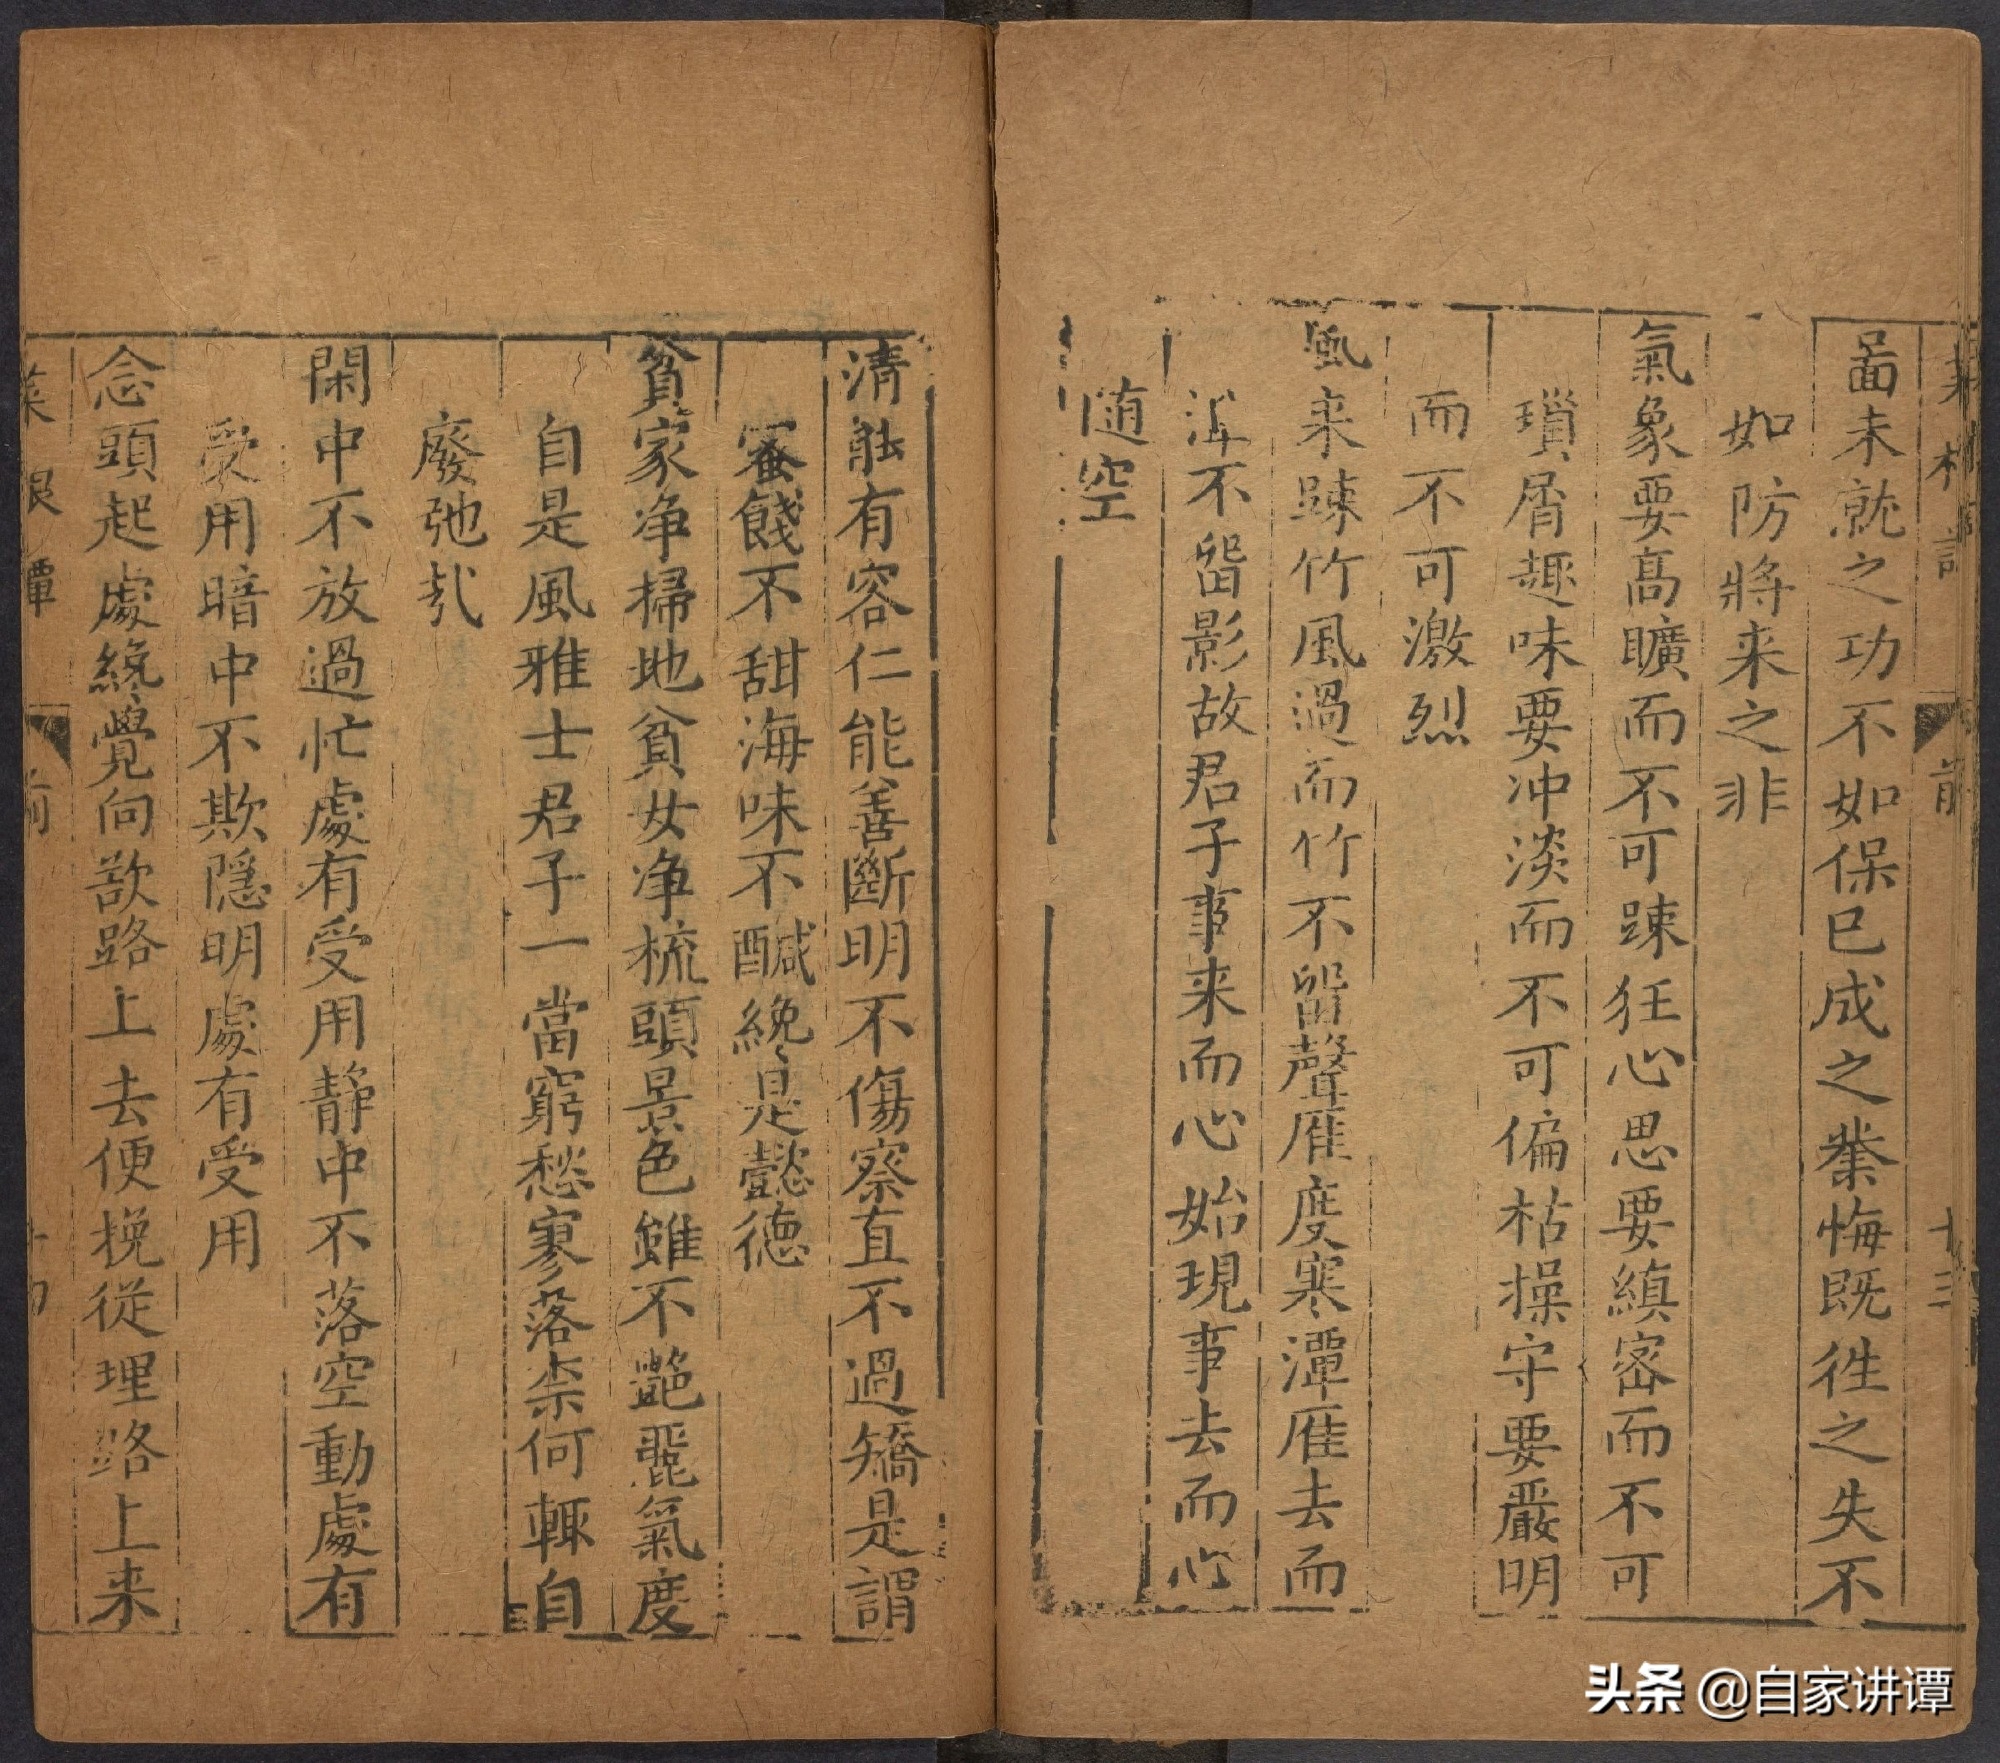 啚未就之功不如保已成之業悔既徃之失不
如防將来之非
氣象要髙曠而不可踈狂心思要縝宻而不可
瑣屑趣味要冲淡而不可偏枯操守要嚴明
而不可激烈
風来踈竹風過而竹不留聲雁度寒潭雁去而
潭不留影故君子事来而心始現事去而心
随空
清能有容仁能善斷明不傷察直不過矯是謂
蜜餞不甜海味不醎纔是懿德
貧家净掃地貧女净梳頭景色雖不艷麗氣度
自是風雅士君子一當窮愁寥落柰何輒自
廢弛㢤
閑中不放過忙處有受用静中不落空動處有
受用暗中不欺隱明處有受用
念頭起處纔覺向欲路上去便挽從理路上来
菜根譚
前
頭条 @自家讲谭